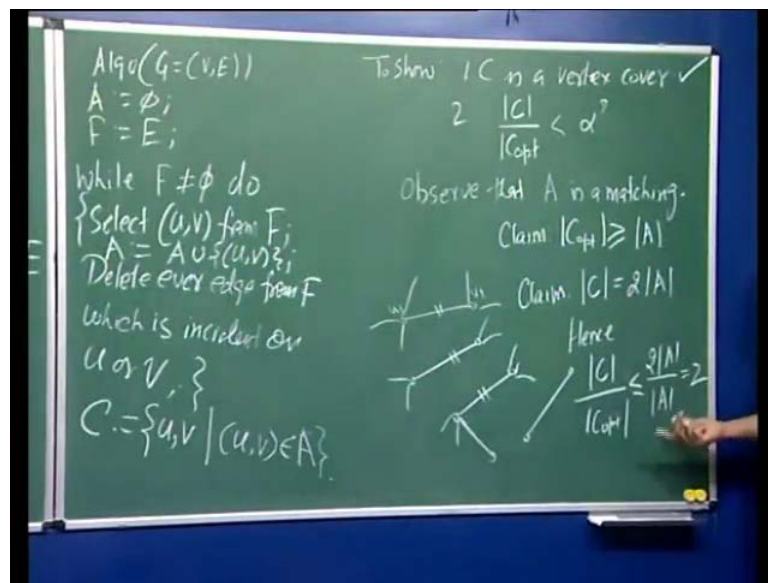 Algo(G=(V,E))
A := φ;
F = E;
While F ≠ φ do
{Select (u,v) from F;
A := A ∪ {(u,v)};
Delete ever edge from F
which is incident on
u or v, }
C := {u,v | (u,v) ∈ A}.
To show 1 C is a vertex cover ✓
2 |C| / |Copt| < α?
Observe that A is a matching.
Claim |Copt| ≥ |A|
Claim |C| = 2|A|
Hence
|C| / |Copt| ≤ 2|A| / |A| = 2